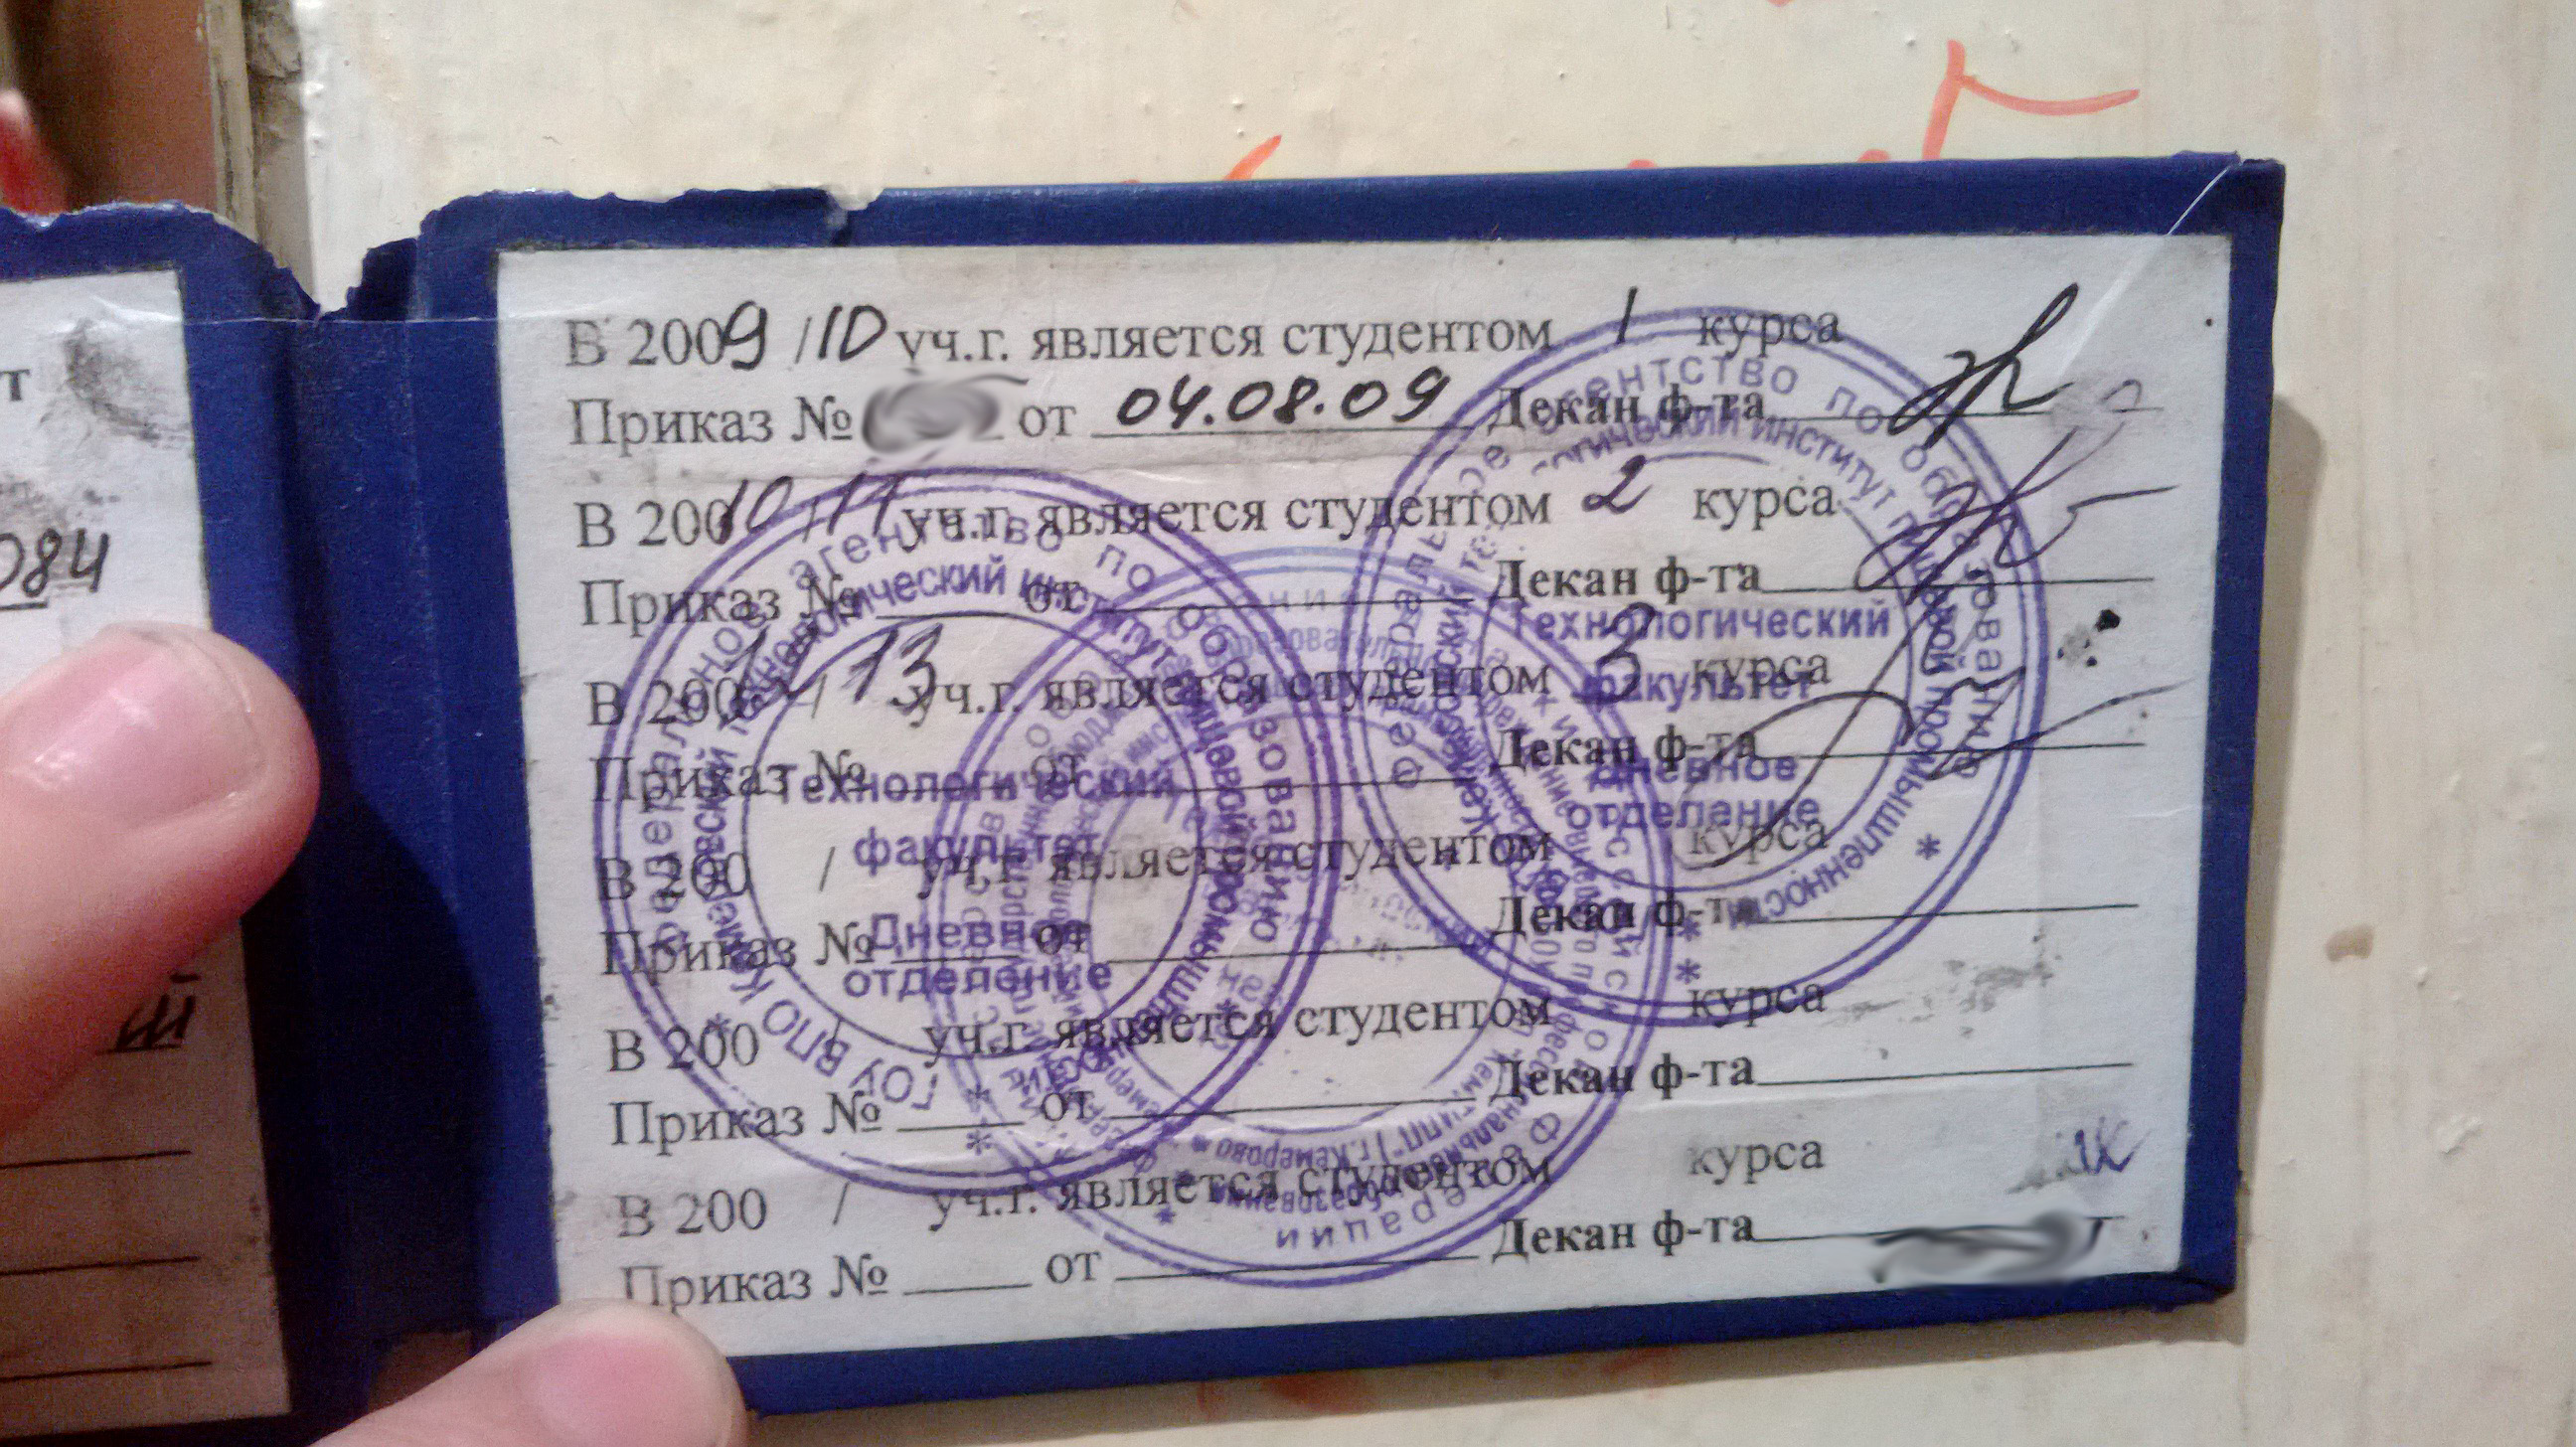 т
084
В 2009 /10 уч.г. является студентом 1 курса
Приказ № от 04.08.09 Декан ф-та
В 20010 /11 уч.г. является студентом 2 курса
Приказ № от Декан ф-та
В 200 / 13 уч.г. является студентом 3 курса
Приказ № от Декан ф-та
В 200 / уч.г. является студентом курса
Приказ № от Декан ф-та
В 200 / уч.г. является студентом курса
Приказ № от Декан ф-та
В 200 / уч.г. является студентом курса
Приказ № от Декан ф-та
Федеральное агентство по образованию
ГОУ ВПО Кемеровский технологический институт пищевой промышленности
Технологический
факультет
Дневное
отделение
Федеральное агентство по образованию
Кемеровский технологический институт пищевой промышленности
Технологический
факультет
Дневное
отделение
Российской Федерации
г.Кемерово